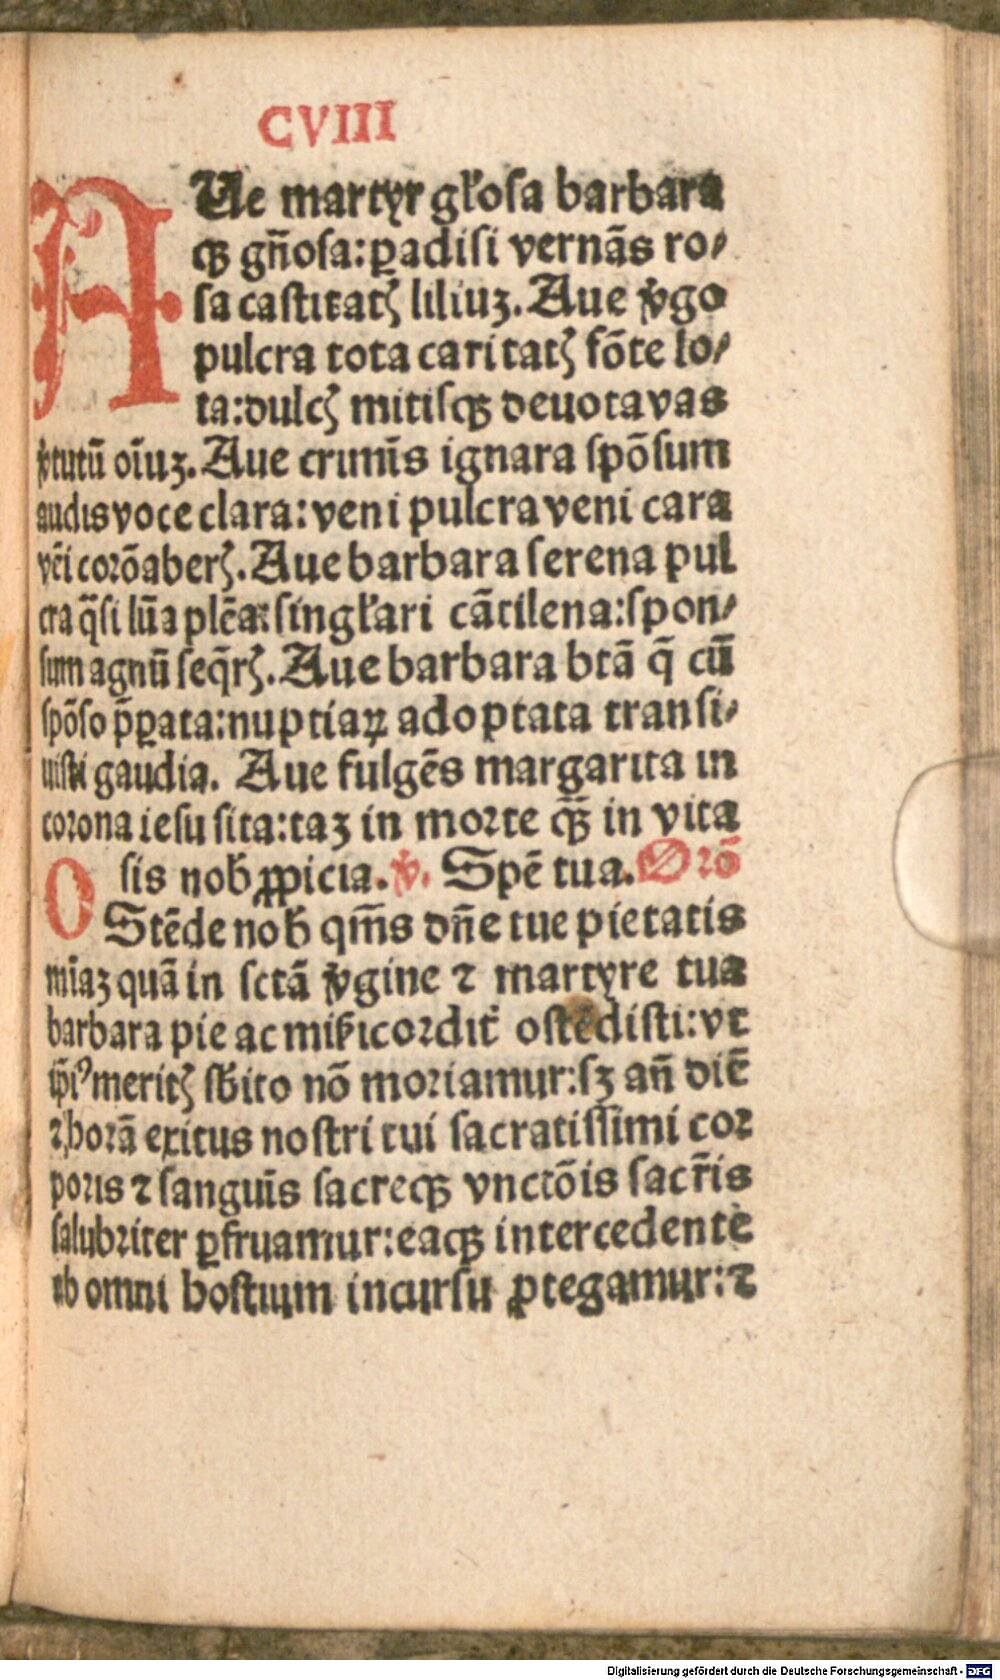 CVIII
AUe martyr gło̅sa barbara
qꝫ gñosa:ꝑadisi vernãs ro⸗
sa castitatꝭ liliuꝫ. Aue v̓go
pulcra tota caritatꝭ fõte lo⸗
ta:dulcꝭ mitisqꝫ deuota vas
v̓tutũ oı̃uꝫ. Aue crimı̃s ignara spõsum
audis voce clara:veni pulcra veni cara
vẽi corõaberꝭ. Aue barbara serena pul
cra q̃si lũa plẽa: singłari cãtilena:spon⸗
sum agnũ seq̃rꝭ. Aue barbara btã q̃ cũ
spõso p̃ꝑata:nuptiaꝝ adoptata transi⸗
uisti gaudia. Aue fulgẽs margarita in
corona iesu sita:taꝫ in morte qꝫ̃ in vita
sis nob̄ ꝓpicia. ℣. Spẽ tua. Orõ
OStẽde nob̄ qm̃s dñe tue pietatis
mı̃aꝫ quã in sctã v̓gine ⁊ martyre tua
barbara pie ac mi&#xA749;icordit̓ ostẽdisti:vt
ip̃iꝰ meritꝭ sb̄ito nõ moriamur:sꝫ añ diẽ
⁊ horã exitus nostri tui sacratissimi cor
poris ⁊ sanguı̃s sacreqꝫ vnctõis sacr̃is
salubriter ꝑfruamur:eaqꝫ intercedente
ab omni hostium incursu ꝓtegamur:⁊
Digitalisierung gefördert durch die Deutsche Forschungsgemeinschaft - DFG